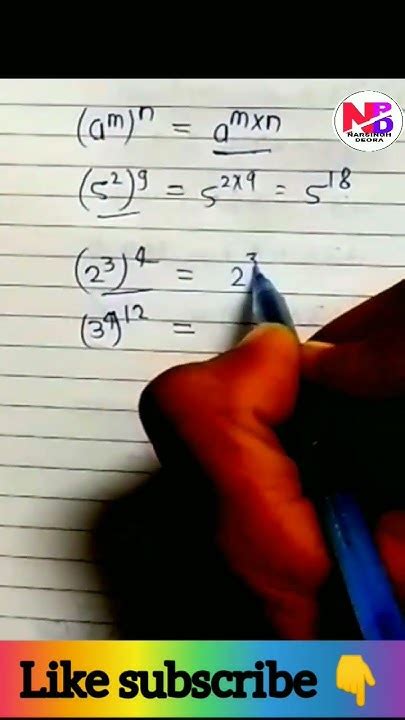 NPD
NARSINGH
DEORA
(a^m)^n = a^{m×n}
(5^2)^9 = 5^{2×9} = 5^{18}
(2^3)^4 = 2^3
(3^4)^{12} =
Like subscribe 👇